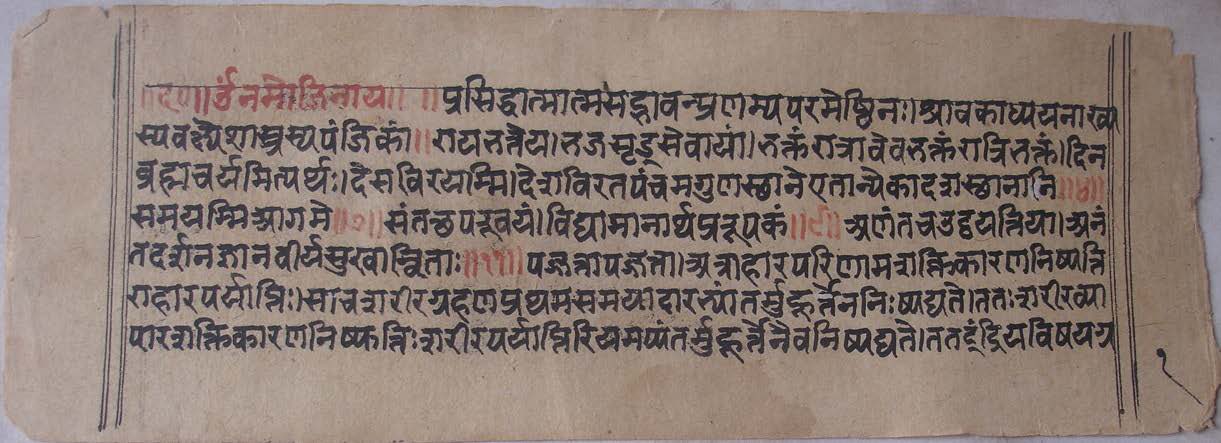 ॥द०॥ ॐ नमो जिनाय॥ ॥ प्रसिद्धात्मात्मसद्भावन्प्रणम्यपरमेष्ठिनः। श्रावकाध्ययनाख्य
स्यवक्ष्येशास्त्रस्यपंजिकां॥ रायत्तत्तेय। तजसृड्सेवायां। तक्तं रात्रावेवत्तक्तंरात्रितक्तं। दिन
ब्रह्मचर्यमित्यर्थः। देसविरयाम्मि। देशविरतपंचमगुणस्छाने एतान्यैकादशस्छानानि॥४॥
समयम्मि आगमे॥७॥ संतछपरूवयं। विद्यामानार्थप्ररूपकं॥९॥ अणंतचउद्दयन्निया। अनं
तदर्शनज्ञानवीर्यसुखान्विताः॥११॥ पज्जत्तापज्जत्ता। अत्राहारपरिणामशक्तिकारणनिष्पत्ति
राहारपर्याप्तिः। साचशरीरग्रहणप्रथमसमयादारभ्यांतर्मुहूर्त्तेननिःष्पद्यते। ततः शरीरव्या
पारशक्तिकारणनिष्फत्तिः शरीरपर्याप्तिरियमप्यंतर्मुहूर्त्तेनैवनिष्पद्यते। ततइंद्रियविषयग्र
१